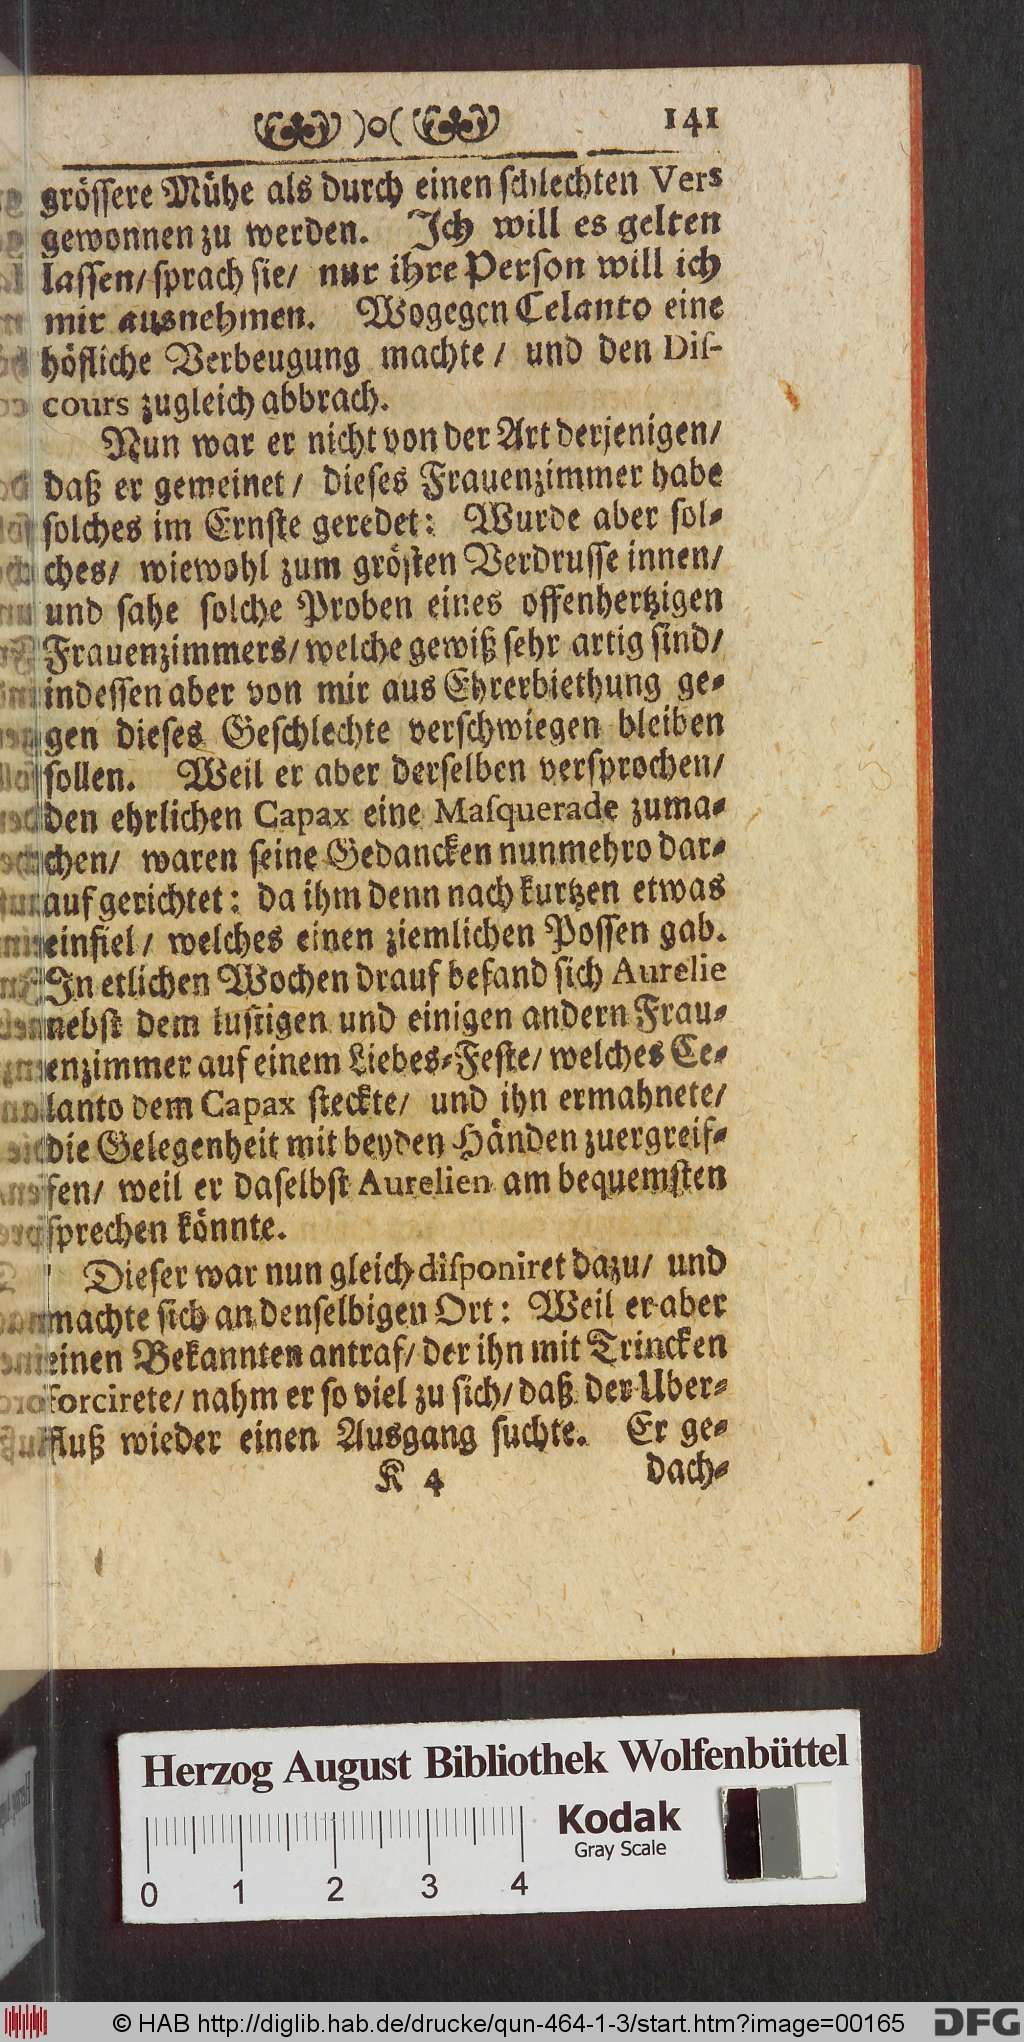 )o( 141
gröſſere Mühe als durch einen ſchlechten Vers
gewonnen zu werden. Ich will es gelten
laſſen/ ſprach ſie/ nur ihre Perſon will ich
mir ausnehmen. Wogegen Celanto eine
höfliche Verbeugung machte/ und den Diſ-
cours zugleich abbrach.
Nun war er nicht von der Art derjenigen/
daß er gemeinet/ dieſes Frauenzimmer habe
ſolches im Ernſte geredet: Wurde aber ſol-
ches/ wiewohl zum gröſten Verdruſſe innen/
und ſahe ſolche Proben eines offenhertzigen
Frauenzimmers/ welche gewiß ſehr artig ſind/
indeſſen aber von mir aus Ehrerbiethung ge-
gen dieſes Geſchlechte verſchwiegen bleiben
ſollen. Weil er aber derſelben verſprochen/
den ehrlichen Capax eine Maſquerade zuma-
chen/ waren ſeine Gedancken nunmehro dar-
auf gerichtet: da ihm denn nach kurtzen etwas
einfiel/ welches einen ziemlichen Poſſen gab.
In etlichen Wochen drauf befand ſich Aurelie
nebſt dem luſtigen und einigen andern Frau-
enzimmer auf einem Liebes-Feſte/ welches Ce-
lanto dem Capax ſteckte/ und ihn ermahnete/
die Gelegenheit mit beyden Händen zuergreif-
fen/ weil er daſelbſt Aurelien am bequemſten
ſprechen könnte.
Dieſer war nun gleich diſponiret dazu/ und
machte ſich an denſelbigen Ort: Weil er aber
einen Bekannten antraf/ der ihn mit Trincken
forcirete/ nahm er ſo viel zu ſich/ daß der Uber-
fluß wieder einen Ausgang ſuchte. Er ge-
K 4 dach-
Herzog August Bibliothek Wolfenbüttel
Kodak
Gray Scale
0 1 2 3 4
© HAB http://diglib.hab.de/drucke/qun-464-1-3/start.htm?image=00165
DFG